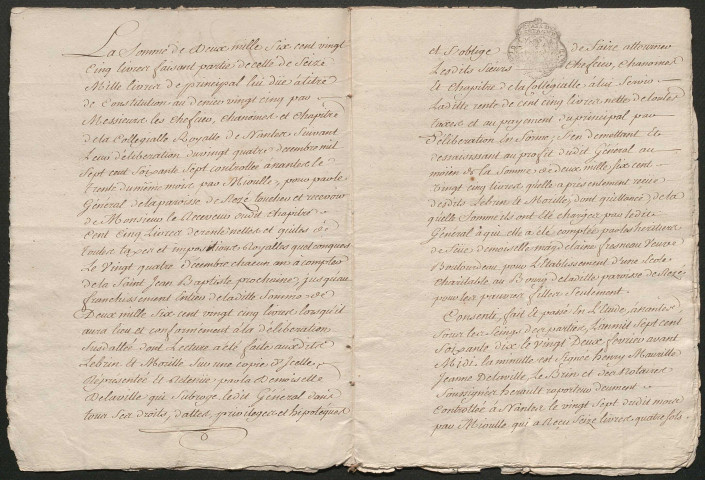 La Somme de Deux mille Six cent vingt
Cinq livres faisant partie de celle de Seize
Mille livres de principal lui due atitre
de Constitution au denier vingt cinq par
Messieurs les Chefcier, chanoines et Chapitre
de la Collegialle Royalle de Nantes Suivant
Leur deliberation du vingt quatre decembre mil
Sept cent Soixante Sept controllée anantes le
trente du même mois par Mioulle, pour par le
Général de la paroisse de Rezé toucher et recevoir
de Monsieur le Receveur dudit Chapitre
Cent Cinq Livres de rente nettes et quites de
toutes taxes et impositions Royalles quelconques
Le Vingt quatre decembre chacun an a compter
de la Saint Jean Baptiste prochaine, jusqu'au
franchissement entier de laditte Somme de
Deux mille Six cent vingt Cinq livres lorsqu'il
aura lieu et conformément a la deliberation
Susdattée dont Lecture a eté faite auxdits
Lebrun et Maville Sur une copie d'Icelle
Representée et retenue par la demoiselle
Delaville qui Subroge ledit Général dans
tous Ses droits, dattes, privileges et hipoteques
et S'oblige de faire attourner
Lesdits Sieurs Chefcier, Chanoines
et Chapitre de la Collégialle a lui Servir
Laditte rente de cent cinq livres nette de toutes
taxes et au payement du principal par
deliberation en forme, S'en demettant et
dessaisissant au profit dudit Général au
moien de la Somme de deux mille Six cent
vingt cinq livres qu'elle a presentement recue
desdits Lebrun et Maville, dont quittance, de la
quelle Somme ils ont eté chargés par ledit
Général a qui elle a eté comptée par les heritiers
de feüe demoiselle magdelaine fresneau Veuve
Boulonneau, pour l'Etablissement d'une Ecole
charitable au Bourg de laditte paroisse de Rezé
pour les pauvres filles Seulement.
Consenti, fait et passé en L'étude, a nantes,
Sous les Seings des parties, L'an mil Sept cent
Soixante dix le vingt Deux fevrier avant
Midi, la minutte est Signée henry Maville
Jeanne Delaville, Le Brun et des Notaires
Soussignés herault raporteur devment
Controllée a Nantes le vingt Sept dudit mois
par Mioulle qui a Reçu Seize livres quatre Sols.